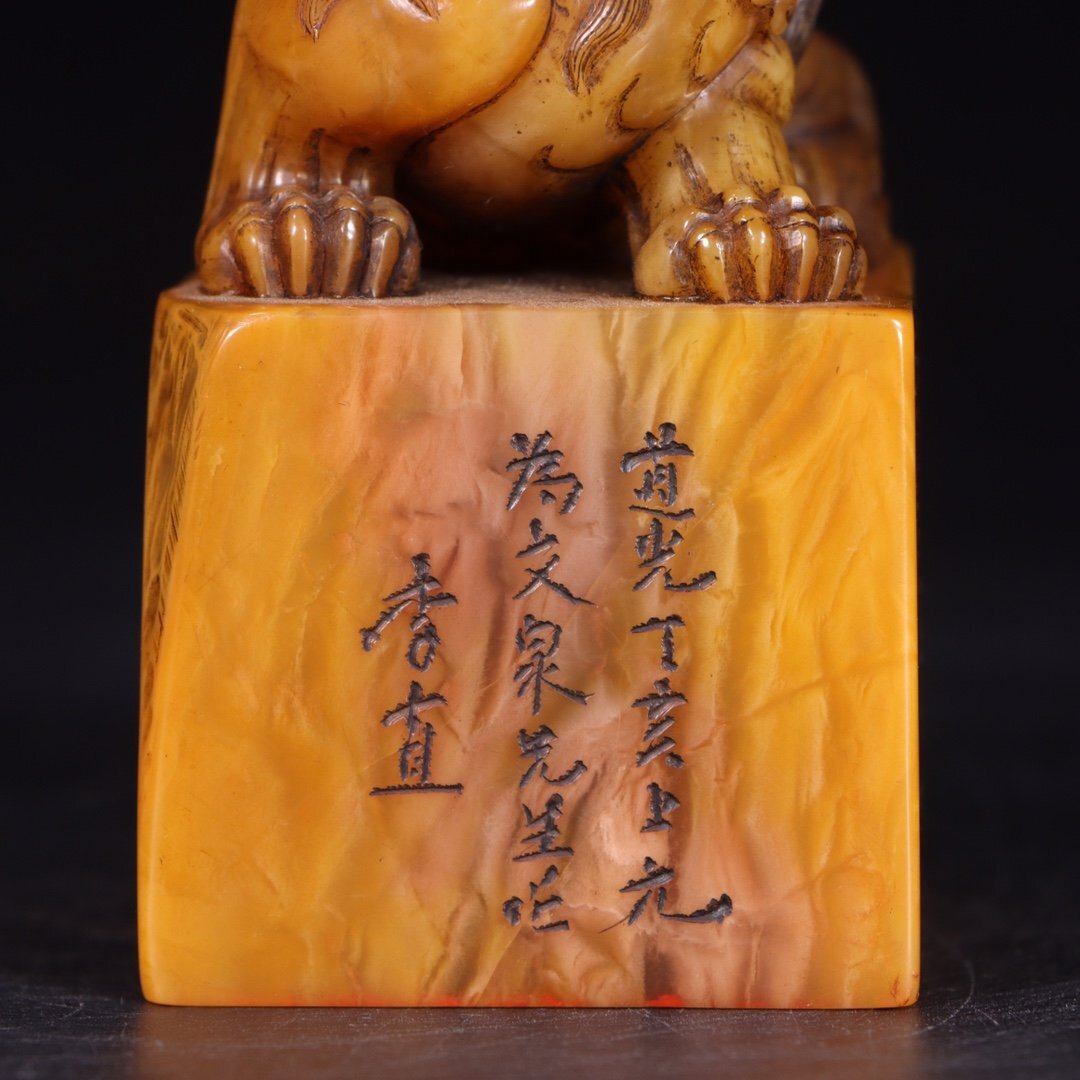 道光丁亥上元
為文泉先生作
季直